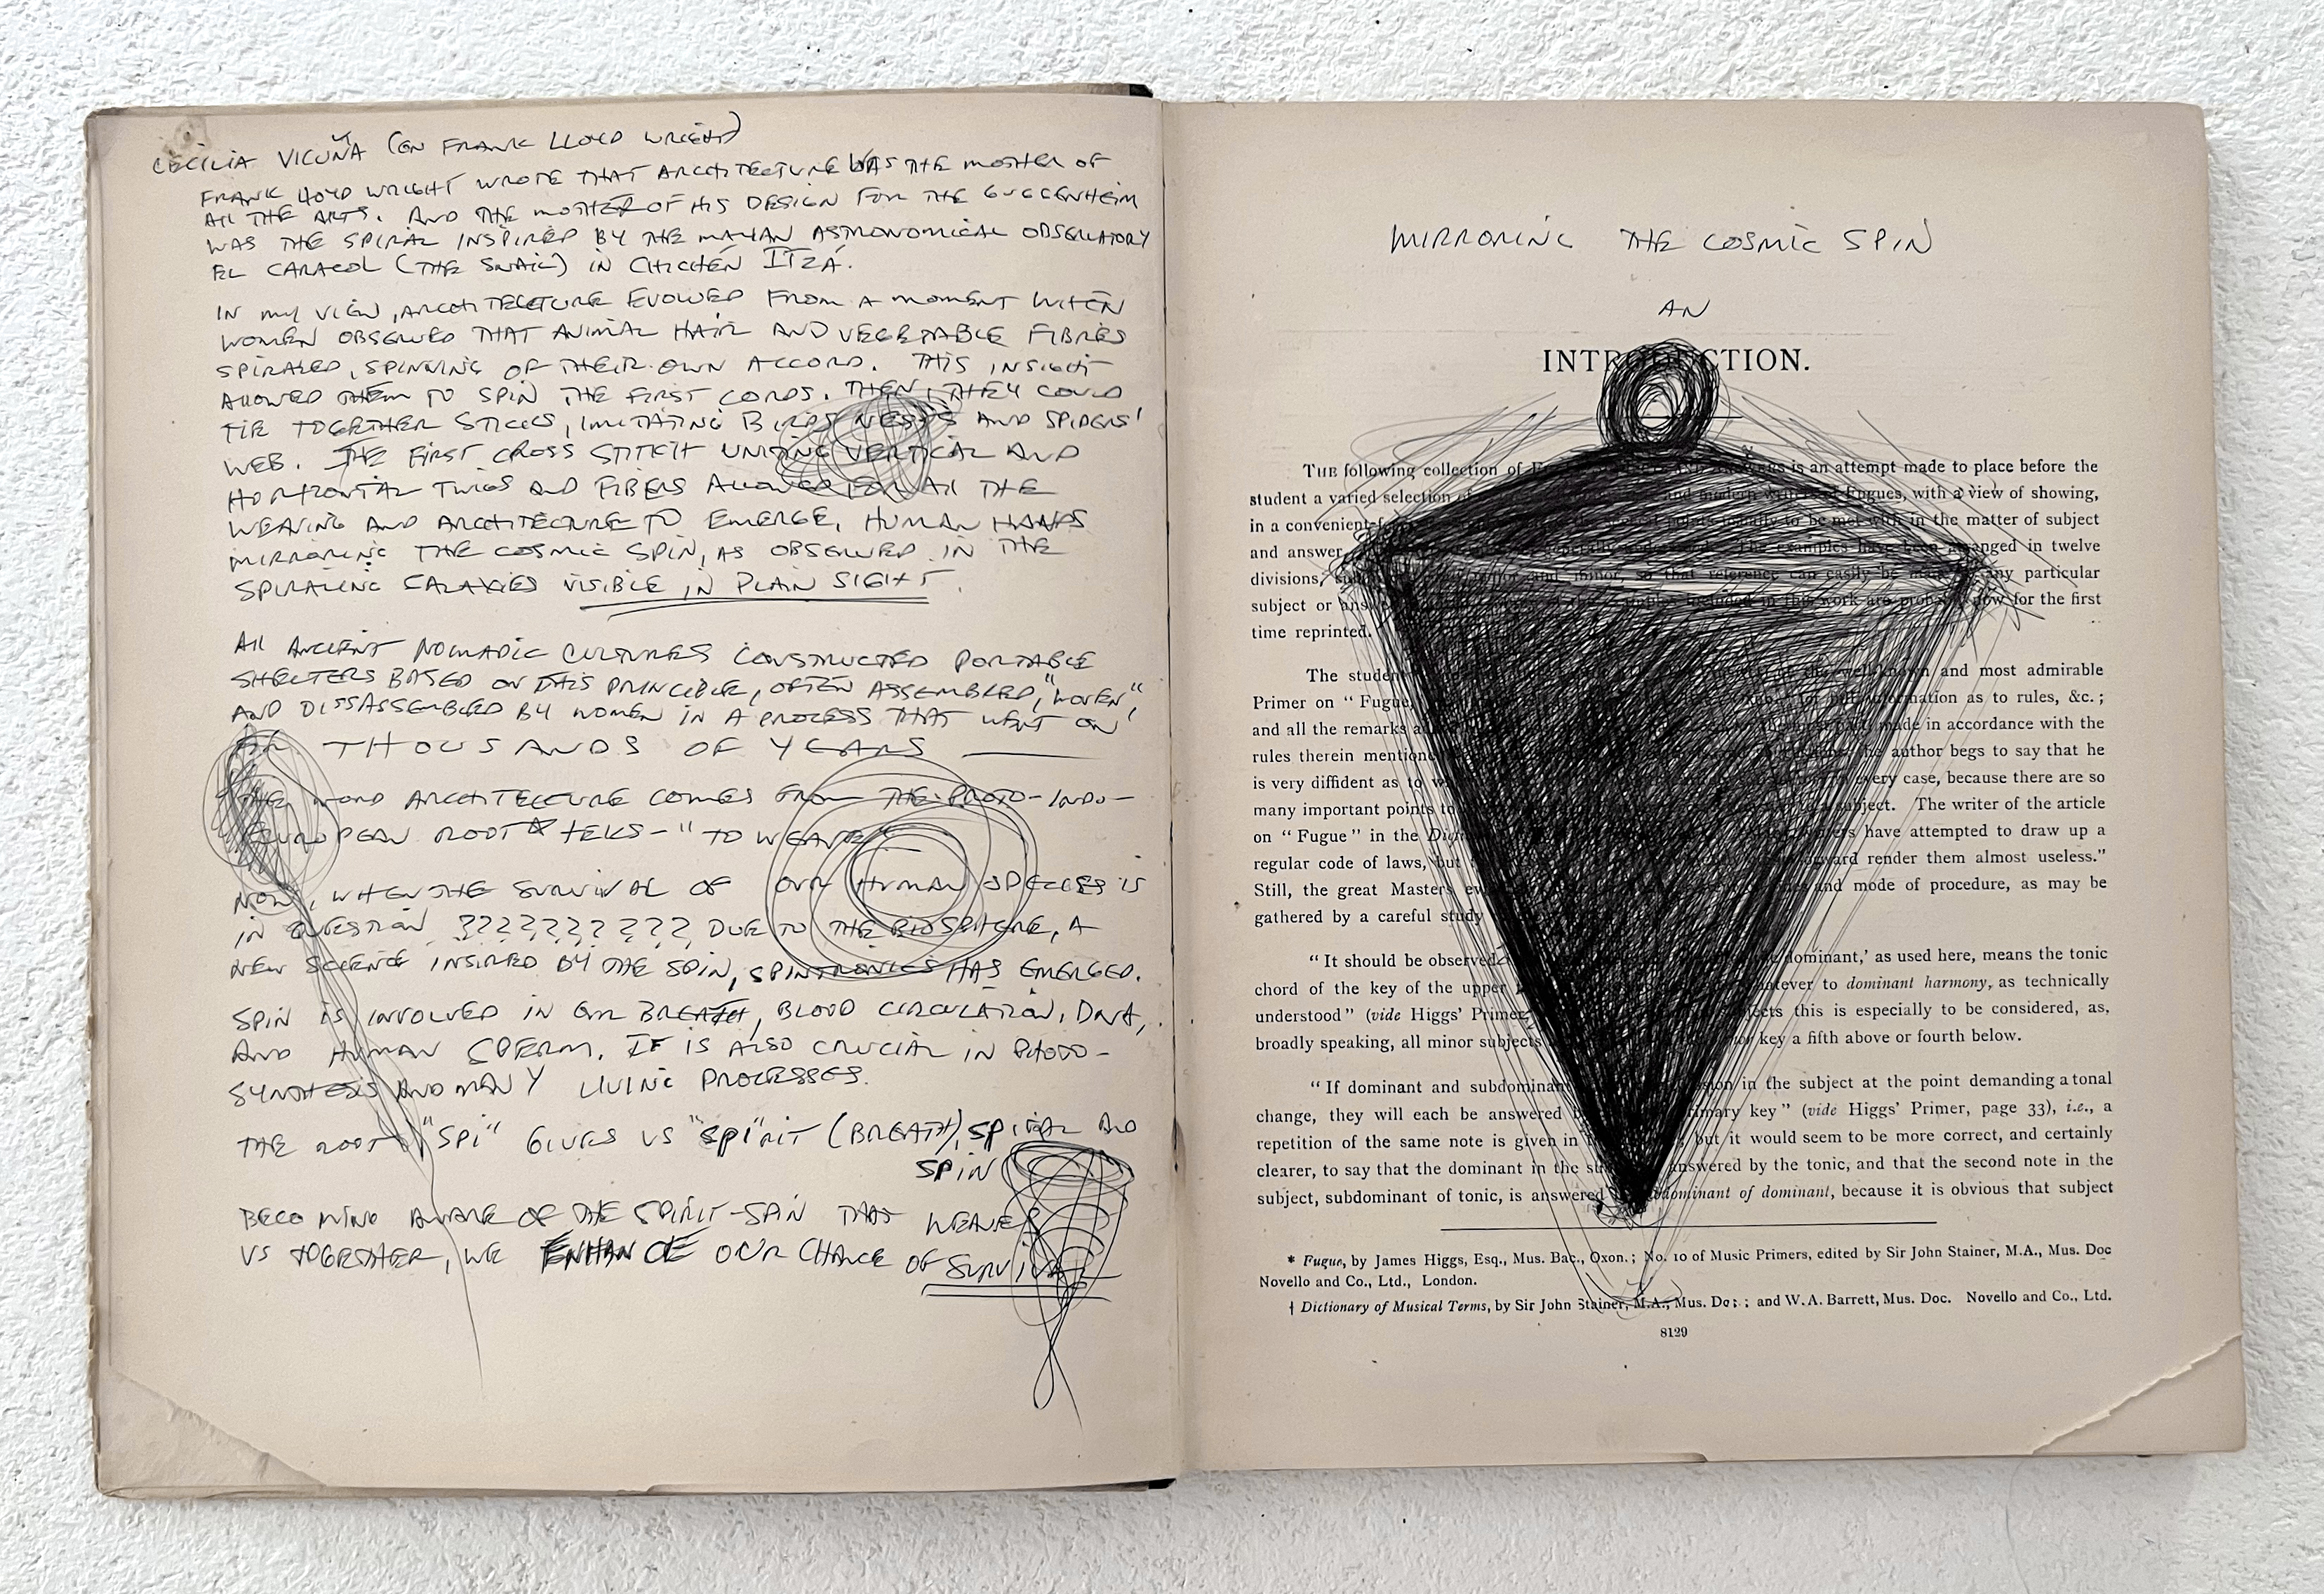 CECILIA VICUÑA (ON FRANK LLOYD WRIGHT)
FRANK LLOYD WRIGHT WROTE THAT ARCHITECTURE WAS THE MOTHER OF
ALL THE ARTS. AND THE MOTHER OF HIS DESIGN FOR THE GUGGENHEIM
WAS THE SPIRAL INSPIRED BY THE MAYAN ASTRONOMICAL OBSERVATORY
EL CARACOL (THE SNAIL) IN CHICHÉN ITZÁ.
IN MY VIEW, ARCHITECTURE EVOLVED FROM A MOMENT WHEN
WOMEN OBSERVED THAT ANIMAL HAIR AND VEGETABLE FIBRES
SPIRALED, SPINNING OF THEIR OWN ACCORD. THIS INSIGHT
ALLOWED THEM TO SPIN THE FIRST CORDS. THEN, THEY COULD
TIE TOGETHER STICKS, IMITATING BIRDS NESTS AND SPIDERS'
WEB. THE FIRST CROSS STITCH UNITING VERTICAL AND
HORIZONTAL TWIGS AND FIBERS ALLOWED FOR ALL THE
WEAVING AND ARCHITECTURE TO EMERGE, HUMAN HANDS
MIRRORING THE COSMIC SPIN, AS OBSERVED IN THE
SPIRALING GALAXIES VISIBLE IN PLAIN SIGHT.
ALL ANCIENT NOMADIC CULTURES CONSTRUCTED PORTABLE
SHELTERS BASED ON THIS PRINCIPLE, OFTEN ASSEMBLED, "WOVEN",
AND DISSASSEMBLED BY WOMEN IN A PROCESS THAT WENT ON
FOR THOUSANDS OF YEARS
THE WORD ARCHITECTURE COMES FROM THE PROTO-INDO-
EUROPEAN ROOT * TEKS- "TO WEAVE"
NOW, WHEN THE SURVIVAL OF OUR HUMAN SPECIES IS
IN QUESTION ?????????? DUE TO THE BIOSPHERE, A
NEW SCIENCE INSIRED BY THE SPIN, SPINTRONICS HAS EMERGED.
SPIN IS INVOLVED IN OUR BREATH, BLOOD CIRCULATION, DNA,
AND HUMAN SPERM. IT IS ALSO CRUCIAL IN PHOTO-
SYNTHESIS AND MANY LIVING PROCESSES.
THE ROOT "SPI" GIVES US "SPI"RIT (BREATH), SPIRAL AND
SPIN
BECOMING AWARE OF THE SPIRIT-SPIN THAT WEAVES
US TOGETHER, WE ENHANCE OUR CHANCE OF SURVIVAL
MIRRORING THE COSMIC SPIN
AN
INTRODUCTION.
THE following collection of is an attempt made to place before the
student a varied selection of and modern writers of Fugues, with a view of showing,
in a convenient usually to be met with in the matter of subject
and answer, The examples have been arranged in twelve
divisions, and minor, so that reference can easily be made to any particular
subject or answer included in this work are probably now for the first
time reprinted.
The student of the well-known and most admirable
Primer on "Fugue, for full information as to rules, &c.;
and all the remarks made in accordance with the
rules therein mentioned. The author begs to say that he
is very diffident as to every case, because there are so
many important points to subject. The writer of the article
on "Fugue" in the have attempted to draw up a
regular code of laws, but render them almost useless."
Still, the great Masters and mode of procedure, as may be
gathered by a careful study
"It should be observed dominant,' as used here, means the tonic
chord of the key of the upper whatever to dominant harmony, as technically
understood" (vide Higgs' Primer, subjects this is especially to be considered, as,
broadly speaking, all minor subjects key a fifth above or fourth below.
"If dominant and subdominant in the subject at the point demanding a tonal
change, they will each be answered primary key" (vide Higgs' Primer, page 33), i.e., a
repetition of the same note is given in but it would seem to be more correct, and certainly
clearer, to say that the dominant in the answered by the tonic, and that the second note in the
subject, subdominant of tonic, is answered subdominant of dominant, because it is obvious that subject
* Fugue, by James Higgs, Esq., Mus. Bac., Oxon.; No. 10 of Music Primers, edited by Sir John Stainer, M.A., Mus. Doc
Novello and Co., Ltd., London.
† Dictionary of Musical Terms, by Sir John Stainer, M.A., Mus. Doc.; and W. A. Barrett, Mus. Doc. Novello and Co., Ltd.
8129